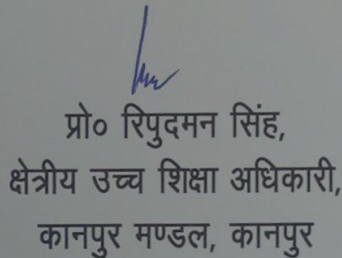 प्रो० रिपुदमन सिंह,
क्षेत्रीय उच्च शिक्षा अधिकारी,
कानपुर मण्डल, कानपुर